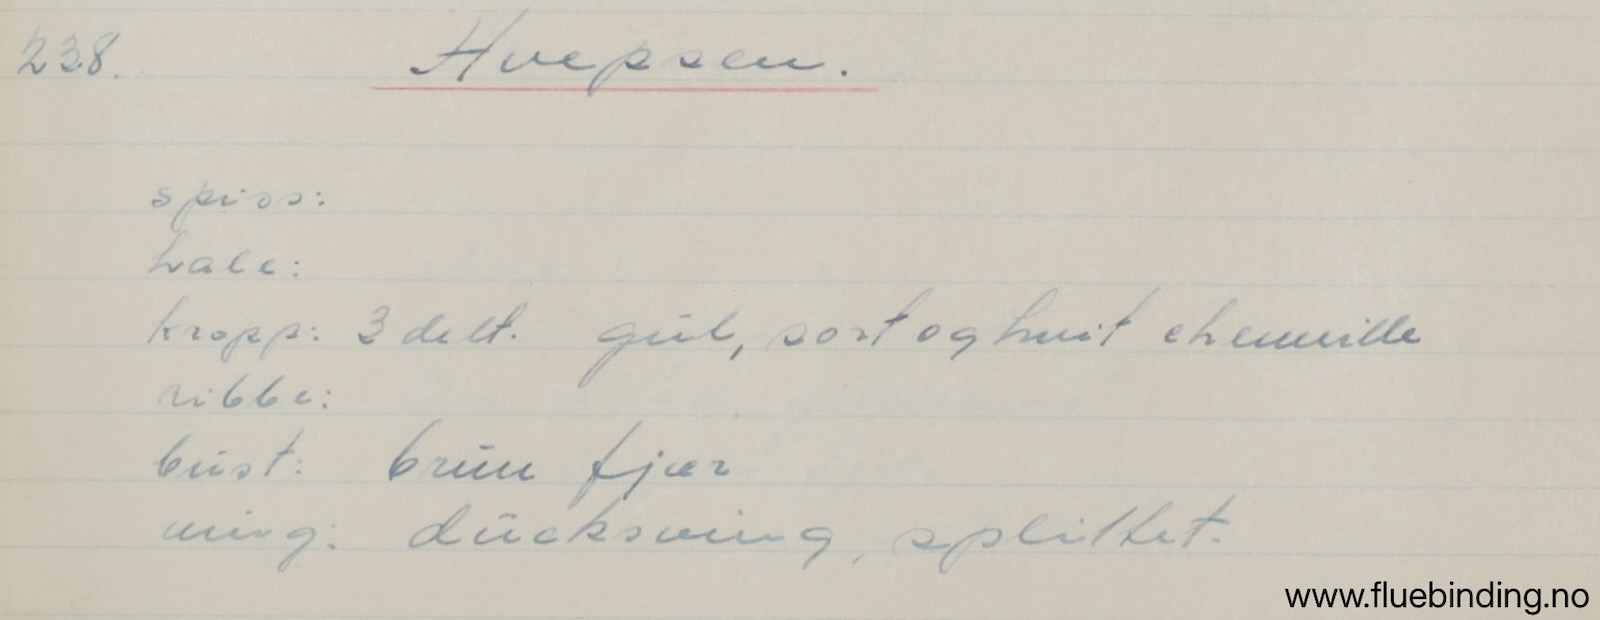 238. Hvepsen.
spiss:
hale:
kropp: 3 delt. gul, sort og hvit chenville
ribbe:
bust: brun fjær
wing: duckswing, splittet.
www.fluebinding.no